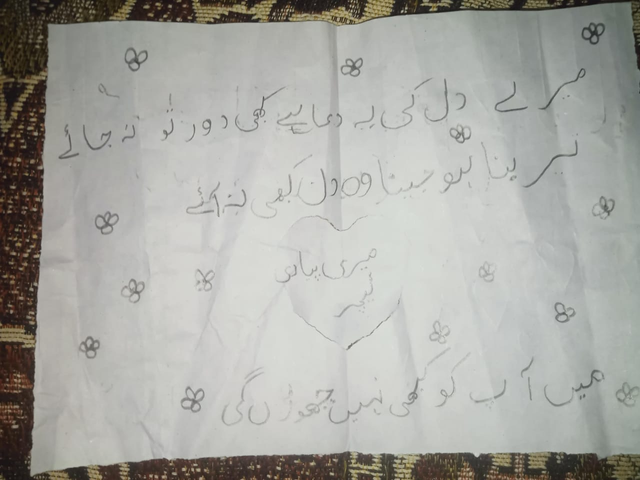 میرے دل کی یہ دعا ہے کبھی دور تو نہ جائے
تیرے بنا ہو جینا وہ دن کبھی نہ آئے
میری پیاری
ٹیچر
میں آپ کو کبھی نہیں چھوڑں گی